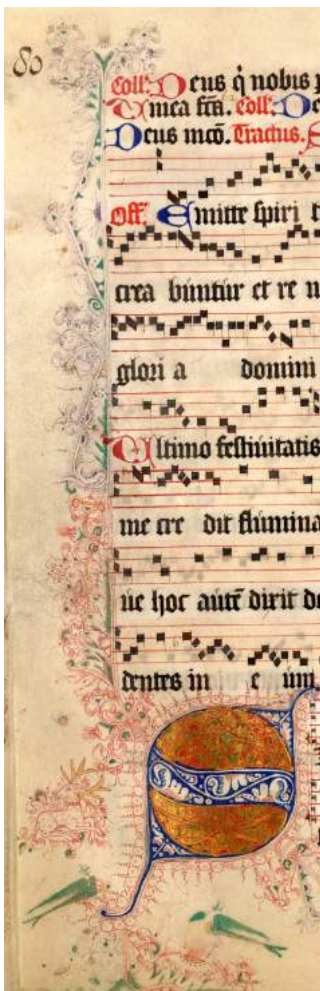 80
Coll'. Deus q̇ nobis p
Unica fc̄a. coll'. De
Deus mc̄o. Tractus. S
Off. Emitte spiri
crea buntur et re n
glori a domini
Ultimo festiuitatis
me cre dit flumina
ue hoc autē dixit de
dentes in e um